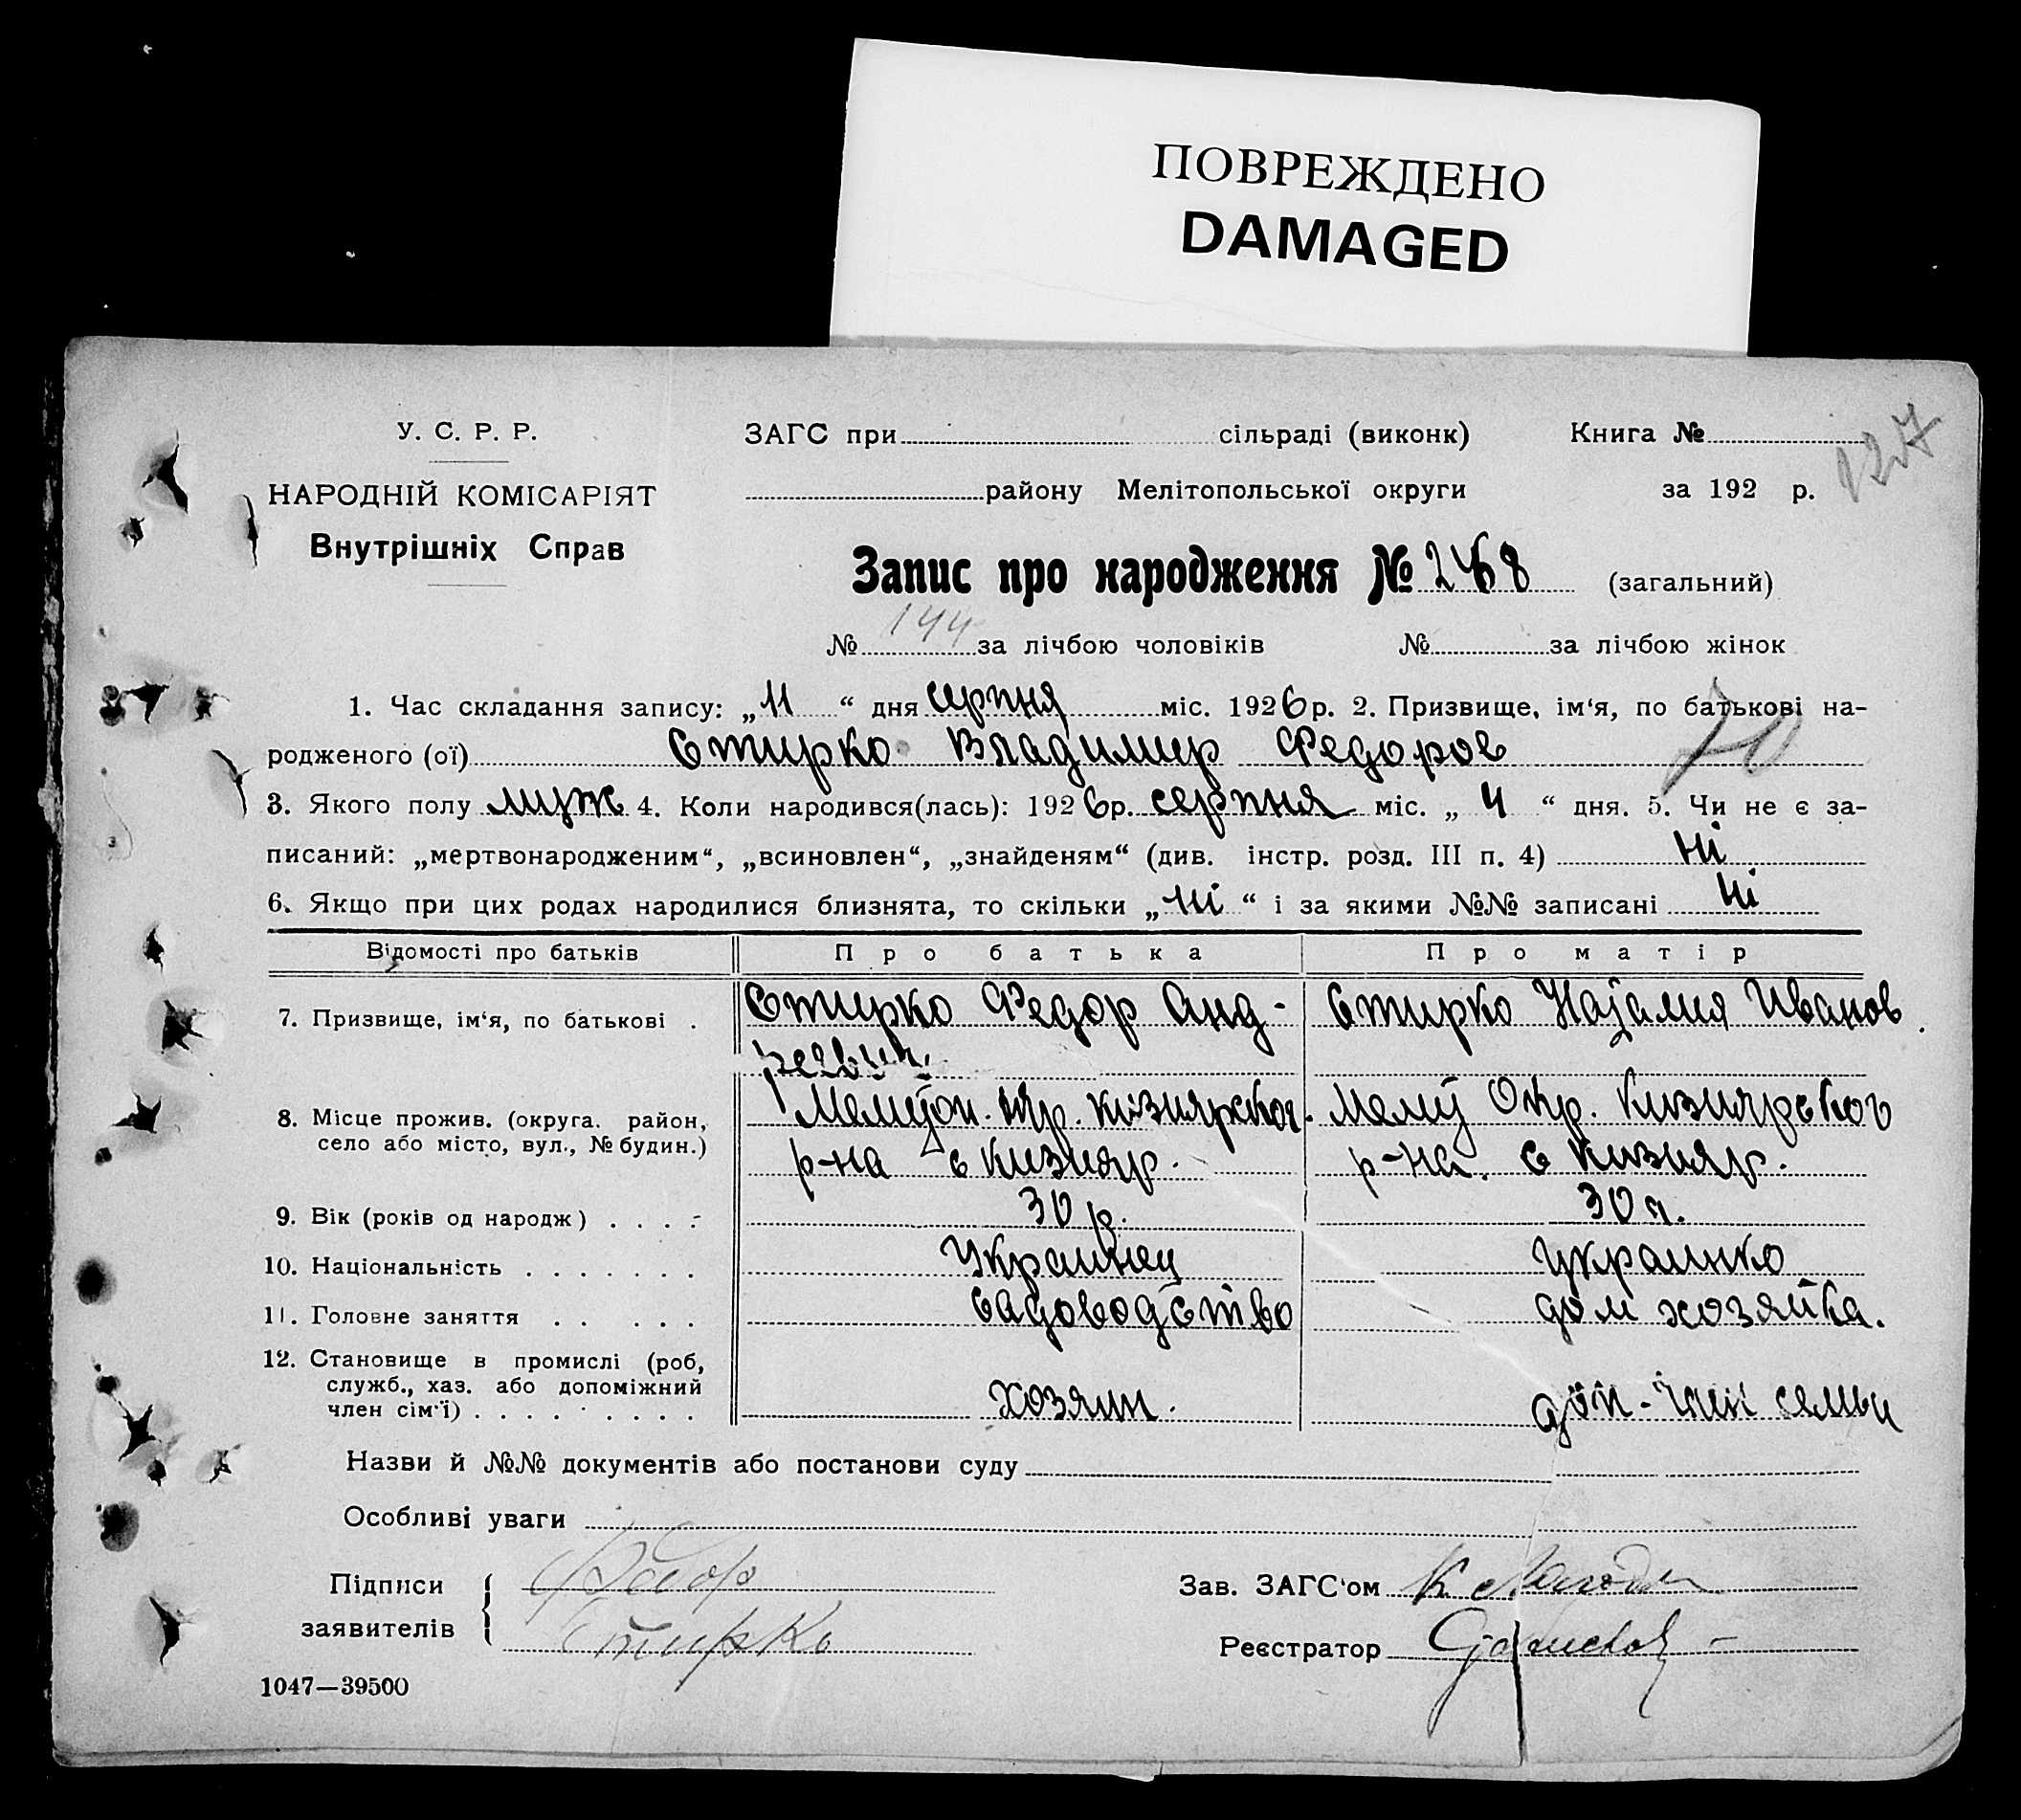 ПОВРЕЖДЕНО
DAMAGED
127
У. С. Р. Р.
НАРОДНІЙ КОМІСАРІЯТ
Внутрішніх Справ
ЗАГС при сільраді (виконк) Книга №
району Мелітопольської округи за 192 р.
Запис про народження № 268 (загальний)
№ 144 за лічбою чоловіків № за лічбою жінок
1. Час складання запису: „11“ дня серпня міс. 1926 р. 2. Призвище, ім‘я, по батькові на-
родженого (ої) Стирко Владимир Федоров
3. Якого полу муж 4. Коли народився(лась): 1926 р. серпня міс. „4“ дня. 5. Чи не є за-
писаний: „мертвонародженим“, „всиновлен“, „знайденям“ (див. інстр. розд. III п. 4) Ні
6. Якщо при цих родах народилися близнята, то скільки „ні“ і за якими №№ записані ні
Відомості про батьків Про батька Про матір
7. Призвище, ім‘я, по батькові . Стирко Федор Анд- Стирко Наталия Иванов
реевич
8. Місце прожив. (округа. район, село або місто, вул., № будин.) Мелітоп. окр. Кизиярског. Меліт Окр. Кизиярског
р-на с Кизияр. р-на. с Кизияр.
9. Вік (років од народж) . . . . 30 р. 30 л.
10. Національність . . . . . . . Украинец украинко
11. Головне заняття . . . . . садоводство дом хозяйка.
12. Становище в промислі (роб,
служб., хаз. або допоміжний
член сім‘ї) . . . . . . . . . хозяин. доп. член семьи
Назви й №№ документів або постанови суду
Особливі уваги
Підписи заявителів Федор
Стирко
Зав. ЗАГС‘ом
Реєстратор
1047—39500